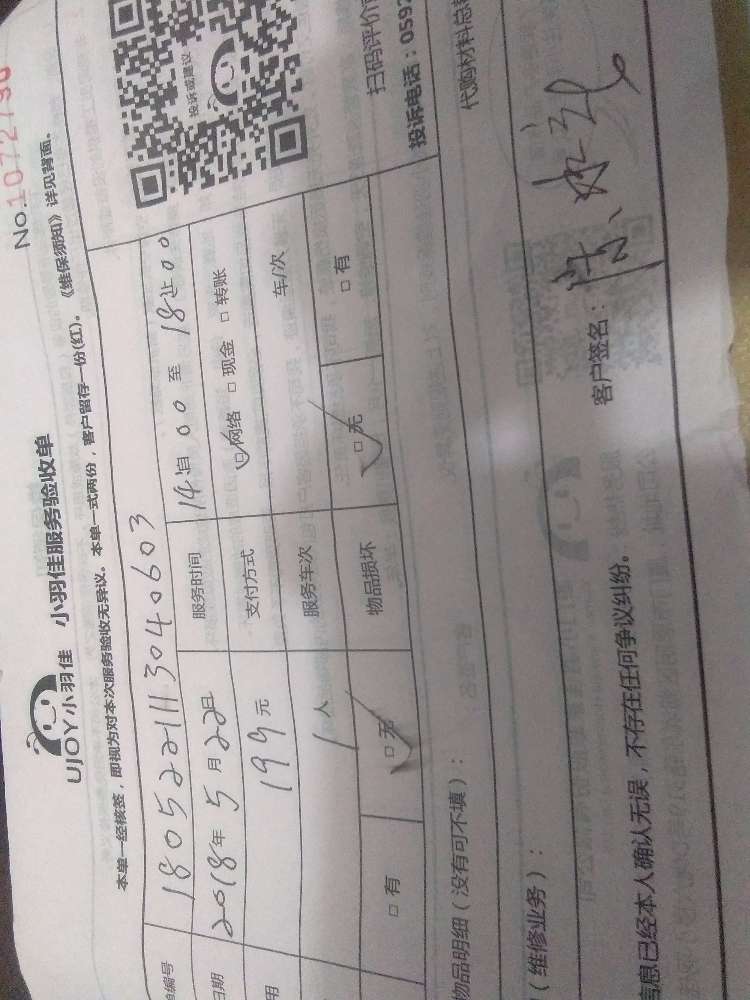 No.1072790
UJOY小羽佳 小羽佳服务验收单
本单一经核签，即视为对本次服务验收无异议。本单一式两份，客户留存一份(红)。《维保须知》详见背面。
编号 1805221113040603
日期 2018年5月22日 服务时间 14自00至18止00
用 199元 支付方式 ☑网络 □现金 □转账
1人 服务车次 车/次
□有 ☑无 物品损坏 ☑无 □有
投诉或建议
扫码评价
投诉电话：0592
物品明细（没有可不填）：
代购材料总
（维修业务）：
信息已经本人确认无误，不存在任何争议纠纷。
客户签名：